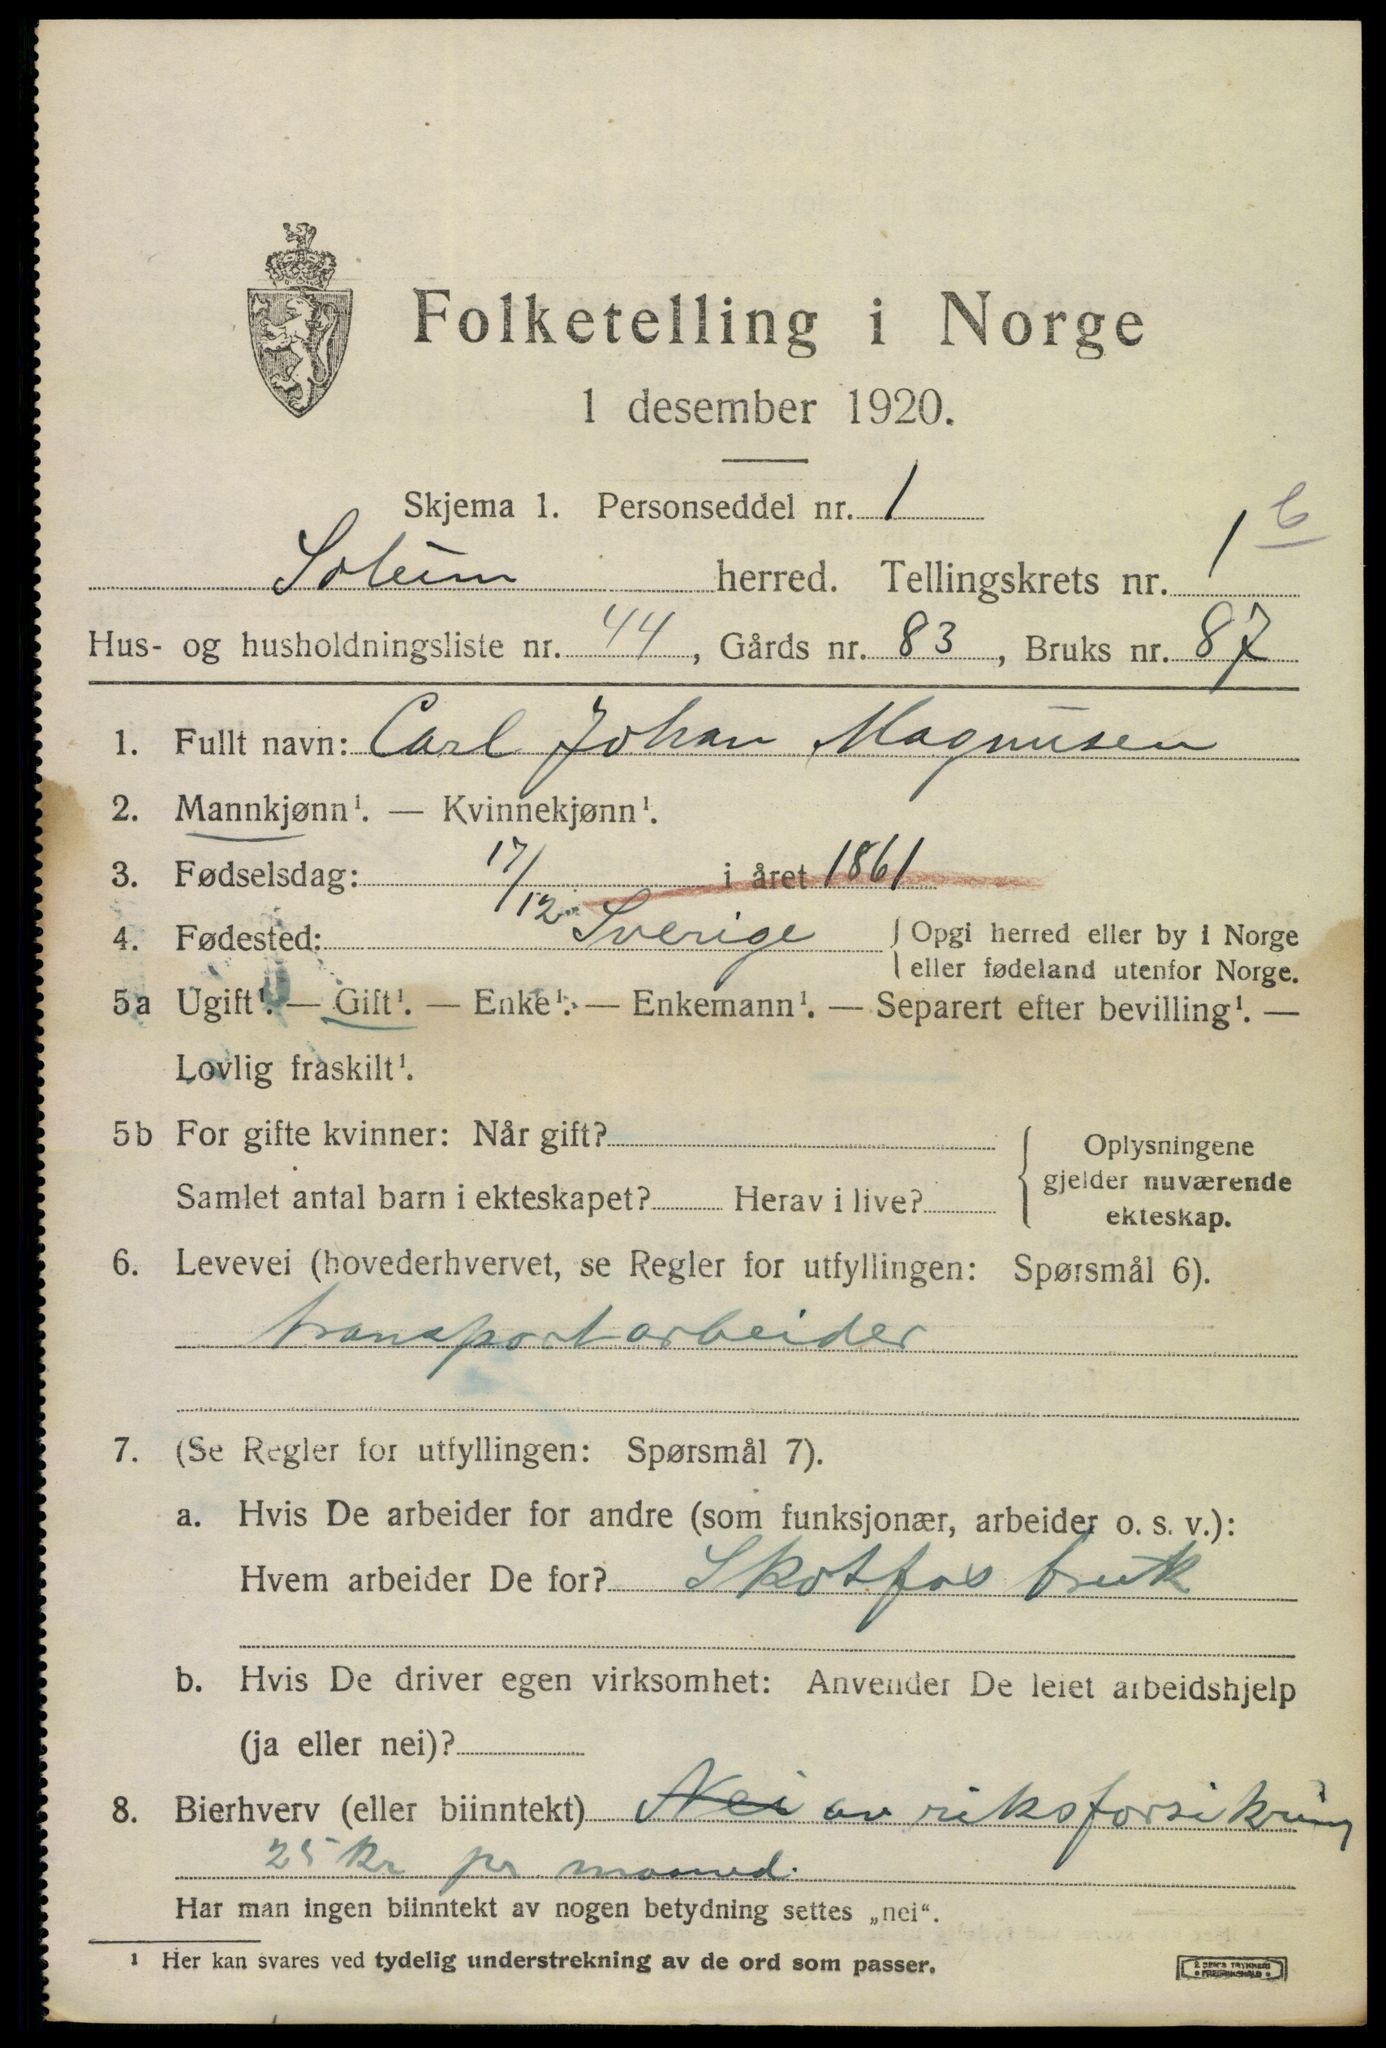 Folketelling i Norge
1 desember 1920.
Skjema 1. Personseddel nr. 1
Solum herred. Tellingskrets nr. 1 b
Hus- og husholdningsliste nr. 44, Gårds nr. 83, Bruks nr. 87
1. Fullt navn: Carl Johan Magnusen
2. Mannkjønn¹. — Kvinnekjønn¹.
3. Fødselsdag: 17/12 i året 1861
4. Fødested: Sverige { Opgi herred eller by i Norge
eller fødeland utenfor Norge.
5a Ugift¹. — Gift¹. — Enke¹. — Enkemann¹. — Separert efter bevilling¹. —
Lovlig fraskilt¹.
5b For gifte kvinner: Når gift?
Samlet antal barn i ekteskapet? Herav i live?
{ Oplysningene
gjelder nuværende
ekteskap.
6. Levevei (hovederhvervet, se Regler for utfyllingen: Spørsmål 6).
transportarbeider
7. (Se Regler for utfyllingen: Spørsmål 7).
a. Hvis De arbeider for andre (som funksjonær, arbeider o. s. v.):
Hvem arbeider De for? Skotfos bruk
b. Hvis De driver egen virksomhet: Anvender De leiet arbeidshjelp
(ja eller nei)?
8. Bierhverv (eller biinntekt) Nei av riksforsikring
25 kr pr maaned.
Har man ingen biinntekt av nogen betydning settes „nei“.
¹ Her kan svares ved tydelig understrekning av de ord som passer.